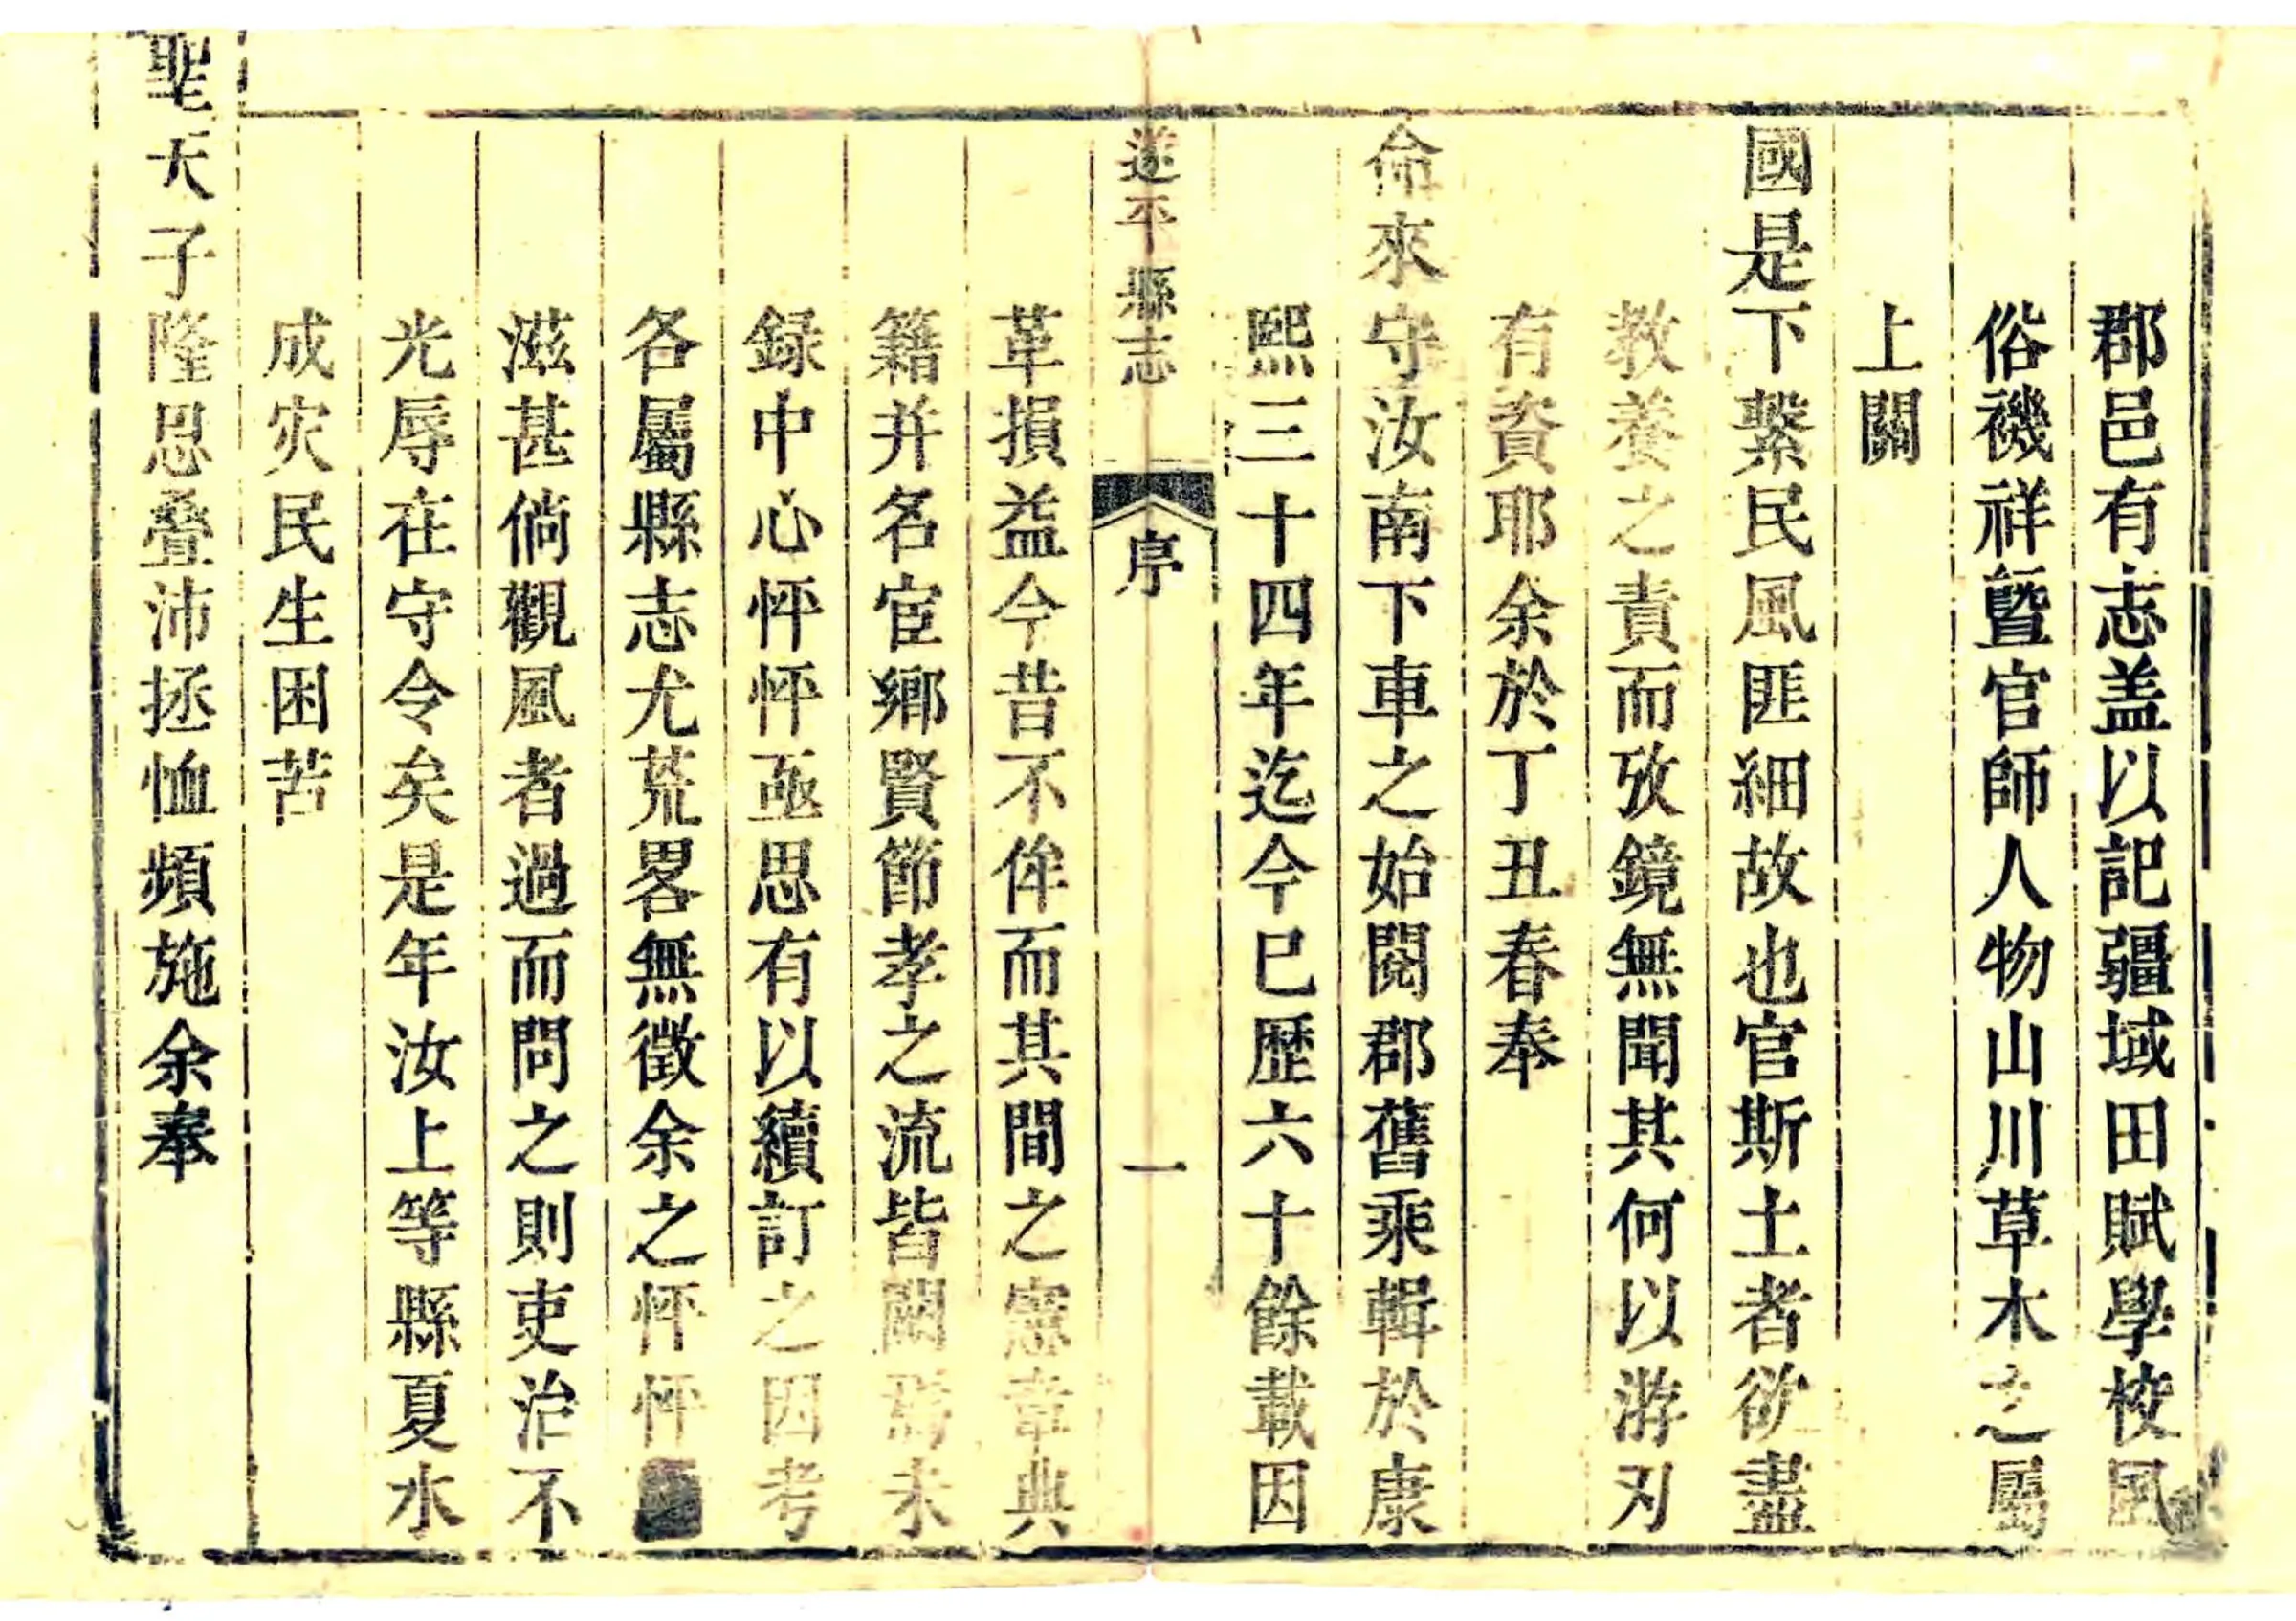 郡邑有志盖以記疆域田賦學校風
俗禨祥曁官師人物山川草木之屬
上關
國是下繫民風匪細故也官斯土者欲盡
教養之責而攷鏡無聞其何以游刃
有資耶余於丁丑春奉
命來守汝南下車之始閱郡舊乘輯於康
熙三十四年迄今已歷六十餘載因
遂平縣志
序
一
革損益今昔不侔而其間之憲章典
籍并名宦鄉賢節孝之流皆闕焉未
録中心怦怦亟思有以續訂之因考
各屬縣志尤荒畧無徵余之怦怦
滋甚倘觀風者過而問之則吏治不
光辱在守令矣是年汝上等縣夏水
成灾民生困苦
聖天子隆恩叠沛拯恤頻施余奉